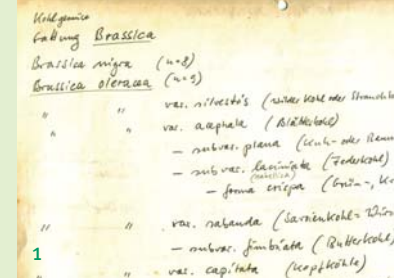 Kohlgemüse
Gattung Brassica
Brassica nigra (n=8)
Brassica oleracea (n=9)
" " var. silvestris (wilder Kohl oder
" " var. acephala (Blätterkohl)
– subvar. plana (Kuh- oder
– subvar. laciniata (Federkohl)
(sabellica)
– forma crispa (Grün-,
" " var. sabauda (Savoienkohl =
– subvar. fimbriata (Butterkohl)
1
" var. capitata (Kopfkohle)